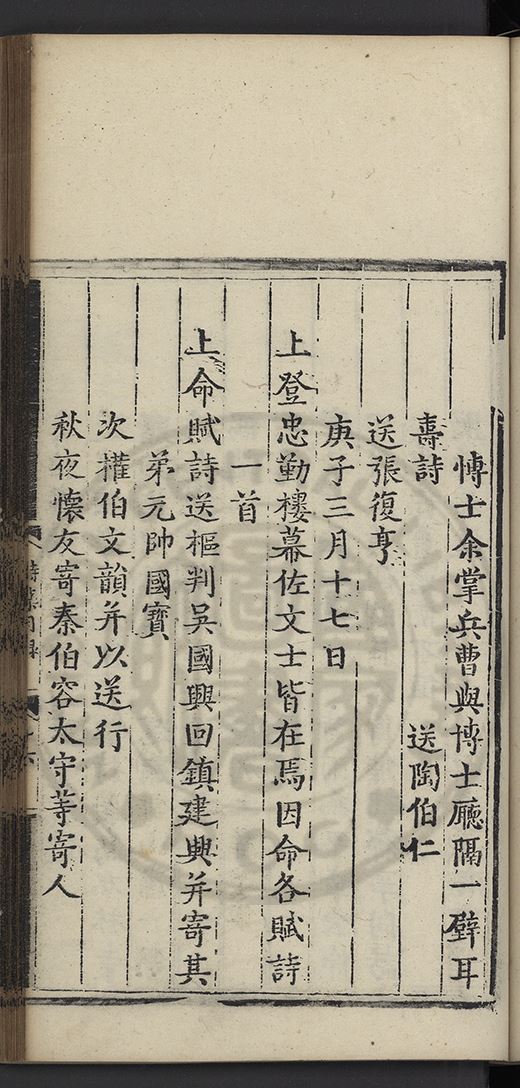 博士余掌兵曹與博士廳隔一壁耳
壽詩　送陶伯仁
送張復亨
庚子三月十七日
上登忠勤樓幕佐文士皆在焉因命各賦詩
一首
上命賦詩送樞判吳國興回鎮建興并寄其
弟元帥國寶
次權伯文韻并以送行
秋夜懷友寄秦伯容太守等寄人